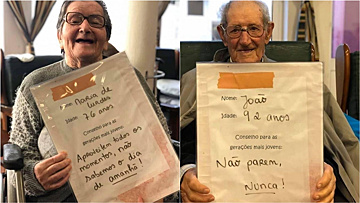 Nome: Maria de
Lurdes
Idade: 76 anos
Conselho para as
gerações mais jovens:
Aproveitem todos os
momentos, não
sabemos o dia
de amanhã!
Nome: João
Idade: 92 anos
Conselho para as
gerações mais jovens:
Não parem,
Nunca!